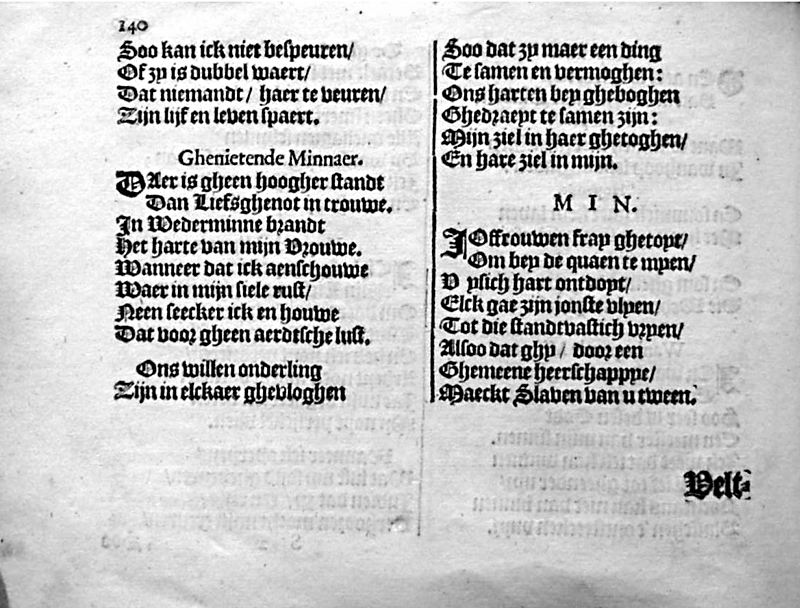 140
Soo kan ick niet bespeuren/
Of zy is dubbel waert/
Dat niemandt/ haer te veuren/
Zijn lijf en leven spaert.
Ghenietende Minnaer.
WAer is gheen hoogher standt
Dan Liefsghenot in trouwe.
In Wederminne brandt
Het harte van mijn Vrouwe.
Wanneer dat ick aenschouwe
Waer in mijn siele rust/
Neen seecker ick en houwe
Dat voor gheen aerdtsche lust.
Ons willen onderling
Zijn in elckaer ghevloghen
Soo dat zy maer een ding
Te samen en vermoghen:
Ons harten bey gheboghen
Ghedraeyt te samen zijn:
Mijn ziel in haer ghetoghen/
En hare ziel in mijn.
MIN.
IOffrouwen fray ghetoyt/
Om bey de quaen te myen/
V ysich hart ontdoyt/
Elck gae zijn jonste vlyen/
Tot die standtvastich vryen/
Alsoo dat ghy/ door een
Ghemeene heerschappye/
Maeckt Slaven van u tween.
Velt-